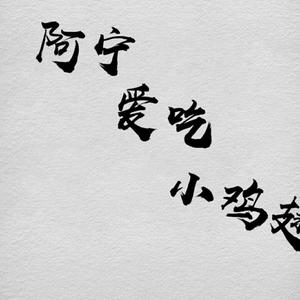 阿宁
爱吃
小鸡翅